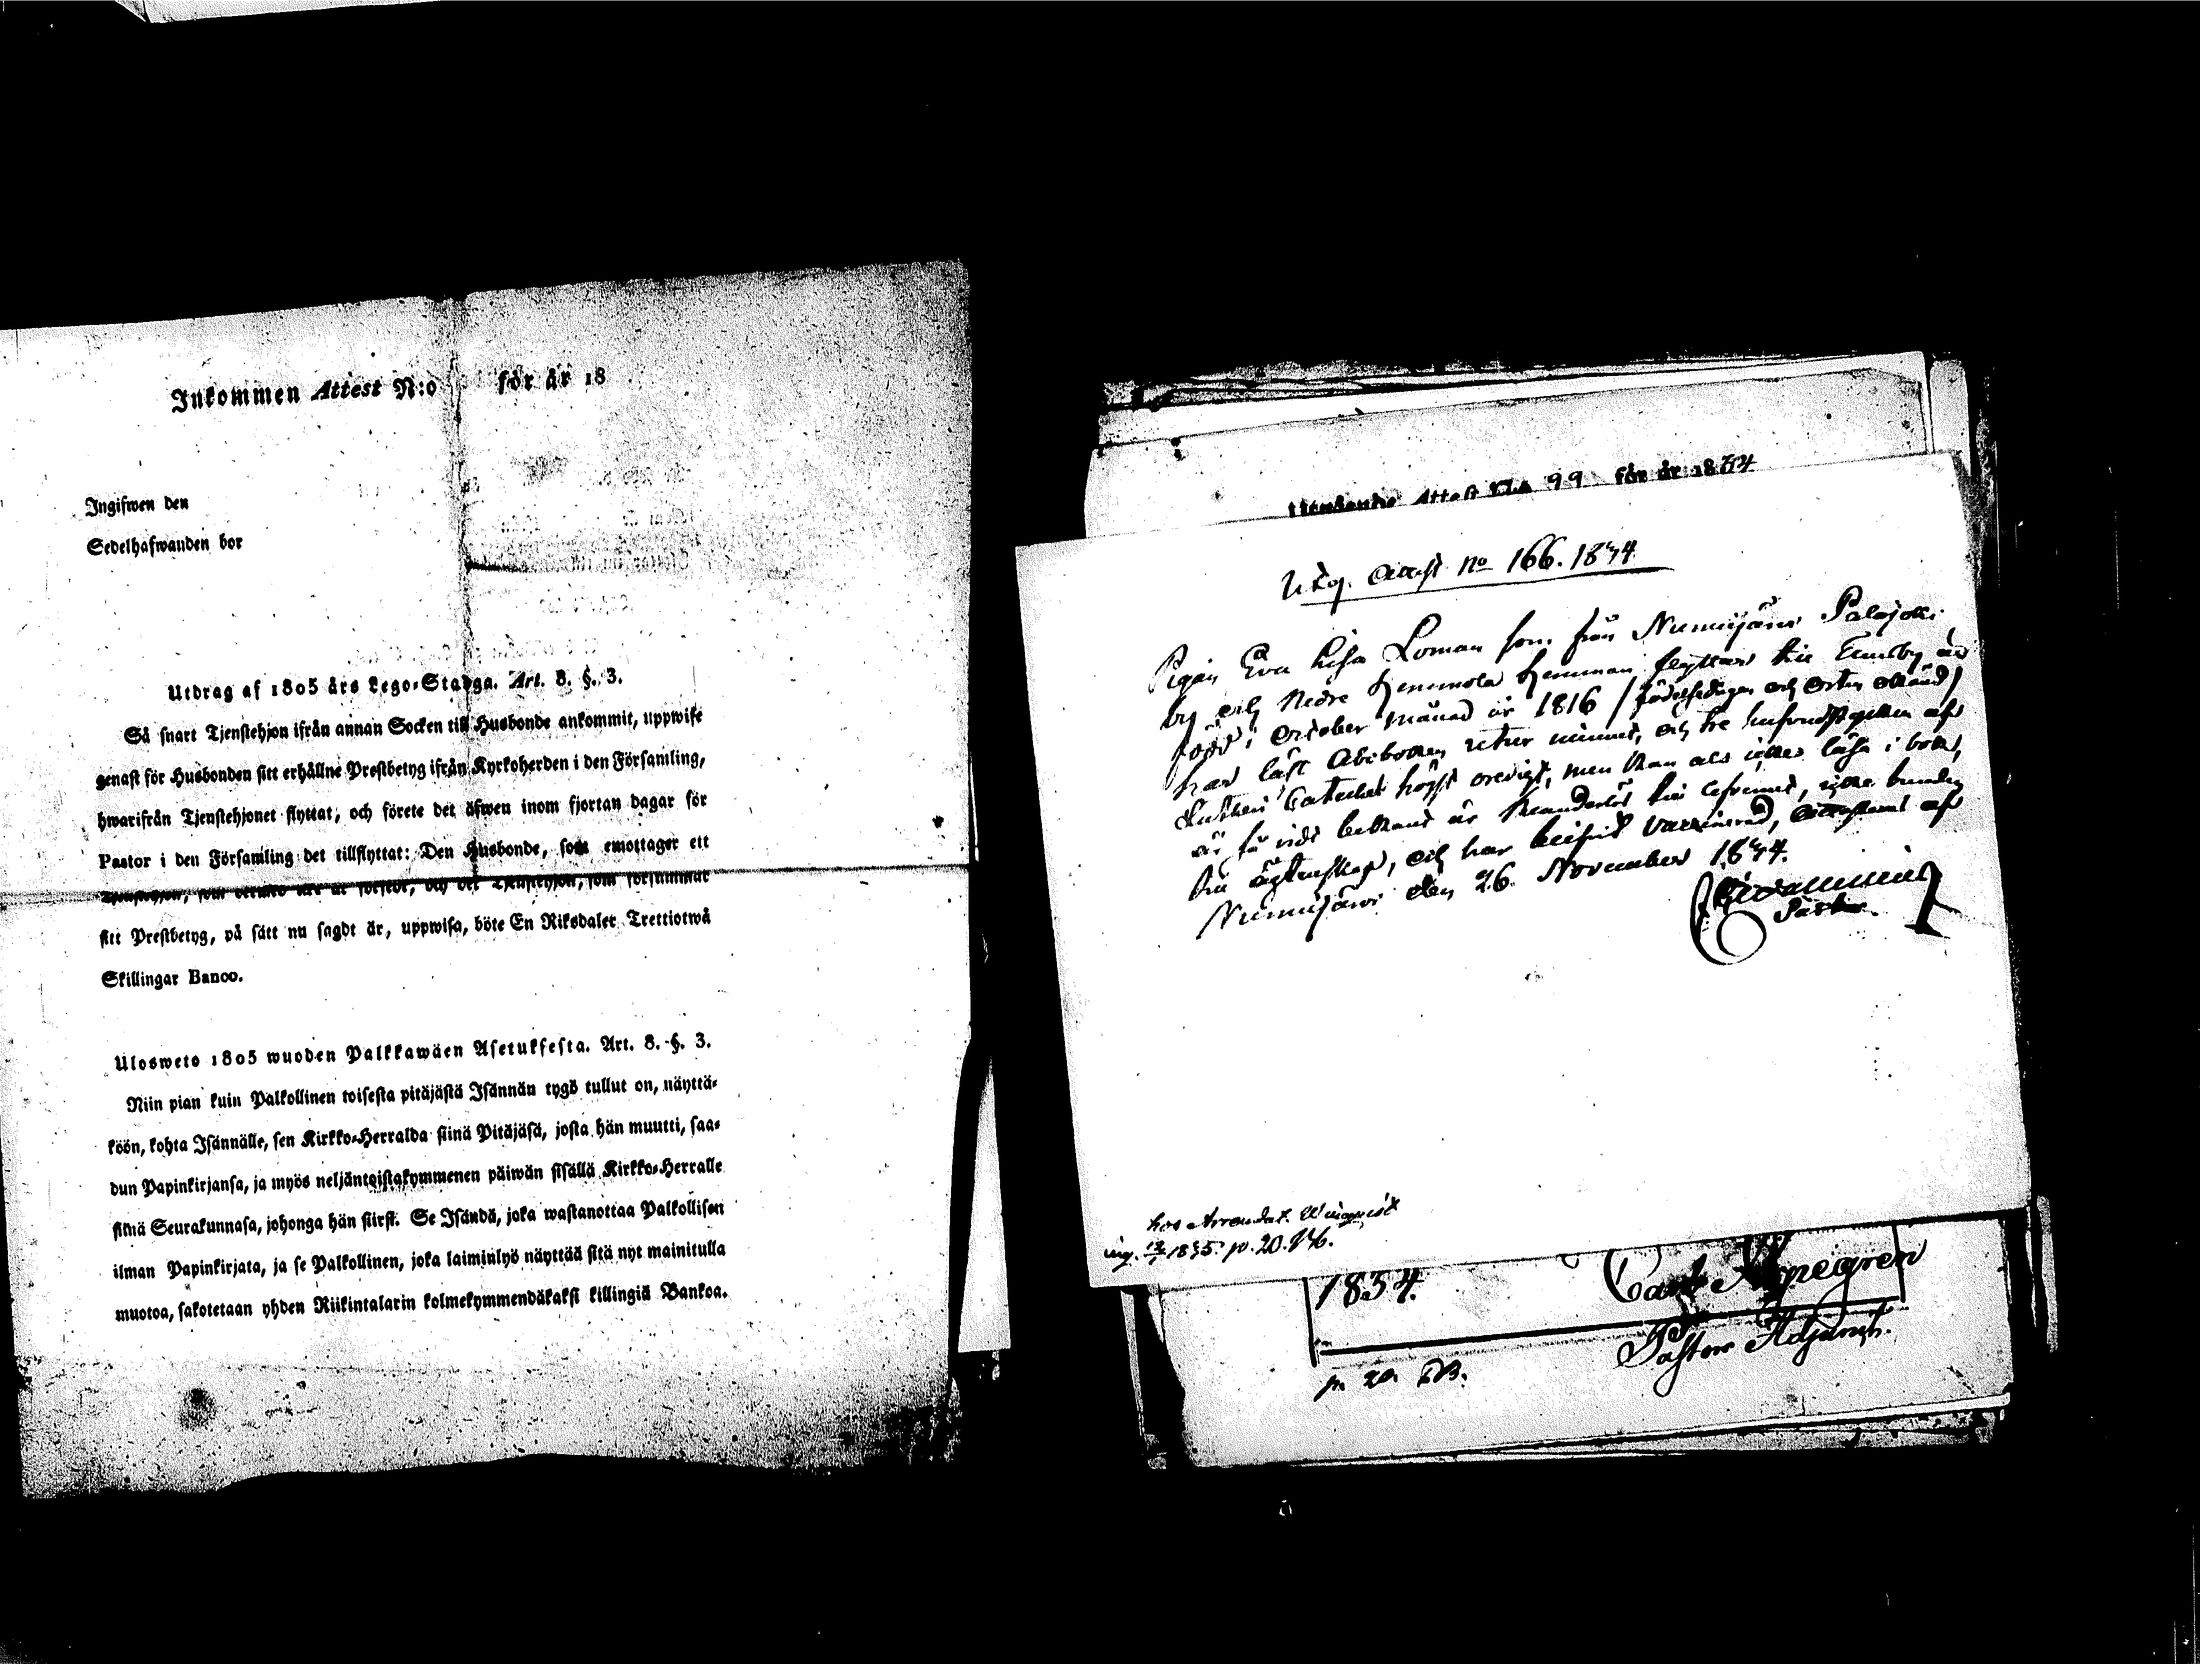 Inkommen Attest N:o för år 18
Ingifwen den
Sedelhafwanden bor
Utdrag af 1805 års Lego-Stadga. Art. 8. §. 3.
Så snart Tjenstehjon ifrån annan Socken till Husbonde ankommit, uppwise
genast för Husbonden sitt erhållne Prestbetyg ifrån Kyrkoherden i den Församling,
hwarifrån Tjenstehjonet flyttat, och förete det äfwen inom fjortan dagar för
Pastor i den Församling det tillflyttat: Den Husbonde, som emottager ett
Tjenstehjon, som och det Tjenstehjon, som försummar
sitt Prestbetyg, på sätt nu sagdt är, uppwisa, böte En Riksdaler Trettiotwå
Skillingar Banco.
Ulosweto 1805 wuoden Palkkawäen Asetuksesta. Art. 8. §. 3.
Niin pian kuin Palkollinen toisesta pitäjästä Isännän tygö tullut on, näyttä-
köön, kohta Isännälle, sen Kirkko-Herralda siinä Pitäjäsä, josta hän muutti, saa-
dun Papinkirjansa, ja myös neljäntoistakymmenen päiwän sisällä Kirkko-Herralle
siinä Seurakunnasa, johonga hän siirst. Se Isändä, joka wastanottaa Palkollisen
ilman Papinkirjata, ja se Palkollinen, joka laiminlyö näyttää sitä nyt mainitulla
muotoa, sakotetaan yhden Riikintalarin kolmekymmendäkaksi killingiä Bankoa.
Attest 99 för år 1834
Utg. Attest No 166. 1834
Pigan Eva Lisa Loman som från Nummijärvi Palojoki
by och Nedre Hemmola hemman flyttar till by är
född i October månad år 1816 / födelsedagen och orten okänd /
har läst Abcboken utur minnet, och tre hufvudstycken af
Lutheri Cateches högst oredigt, men kan als icke läsa i bok,
är så vidt bekant är till lefvernet, icke bunden
till ägtenskap, och har blifvit vaccinerad, af
Nummijärvi den 26 November 1834.
Pastor.
hos Arrendat. Winqvist
ing. 1835. p. 20.
1834.
Carl
Pastors Adjunct.
p. 20